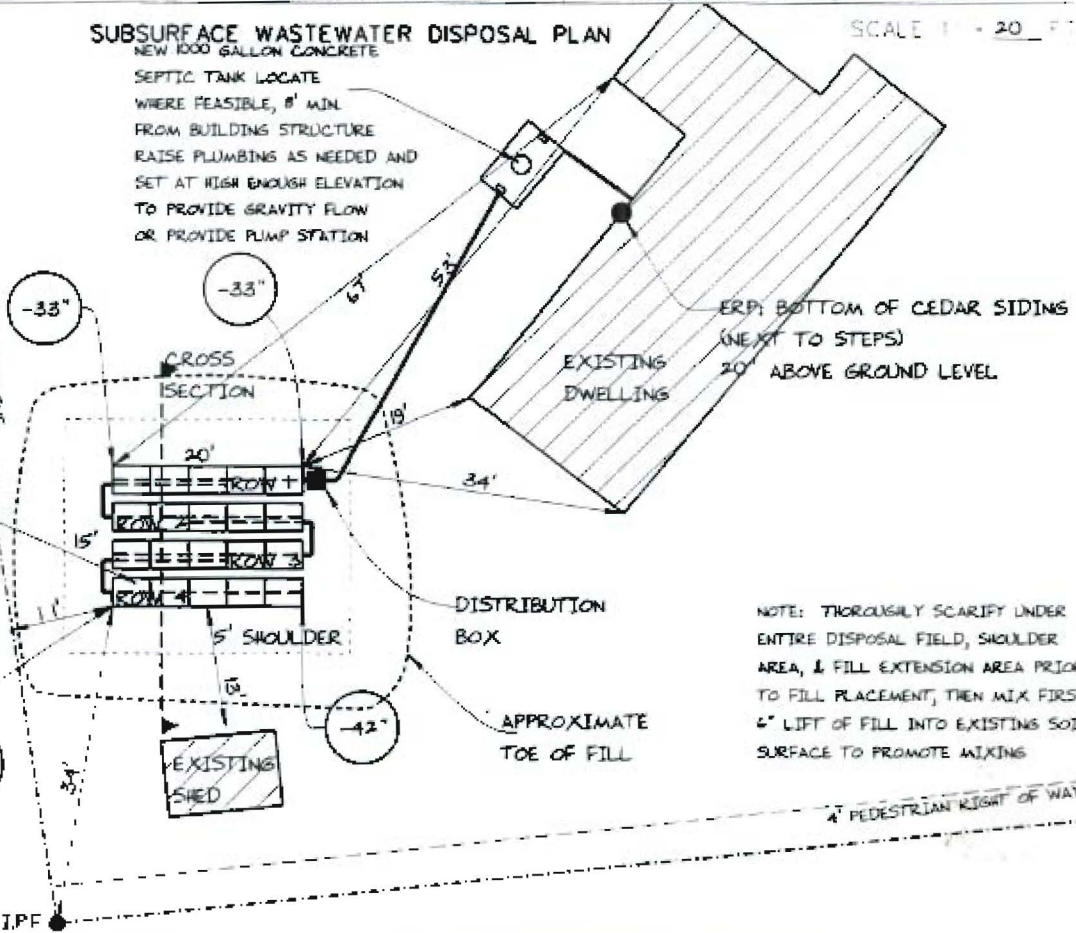 SUBSURFACE WASTEWATER DISPOSAL PLAN
SCALE 1" = 20 FT
NEW 1000 GALLON CONCRETE
SEPTIC TANK LOCATE
WHERE FEASIBLE, 8' MIN.
FROM BUILDING STRUCTURE
RAISE PLUMBING AS NEEDED AND
SET AT HIGH ENOUGH ELEVATION
TO PROVIDE GRAVITY FLOW
OR PROVIDE PUMP STATION
-33"
-33"
67'
53'
ERP: BOTTOM OF CEDAR SIDING
(NEXT TO STEPS)
20" ABOVE GROUND LEVEL
CROSS
SECTION
EXISTING
DWELLING
19'
20'
34'
ROW 1
ROW 2
15'
ROW 3
ROW 4
11'
5' SHOULDER
DISTRIBUTION
BOX
NOTE: THOROUGHLY SCARIFY UNDER
ENTIRE DISPOSAL FIELD, SHOULDER
AREA, & FILL EXTENSION AREA PRIOR
TO FILL PLACEMENT, THEN MIX FIRST
6" LIFT OF FILL INTO EXISTING SOIL
SURFACE TO PROMOTE MIXING
-42"
APPROXIMATE
TOE OF FILL
EXISTING
SHED
4' PEDESTRIAN RIGHT OF WAY
I.P.F